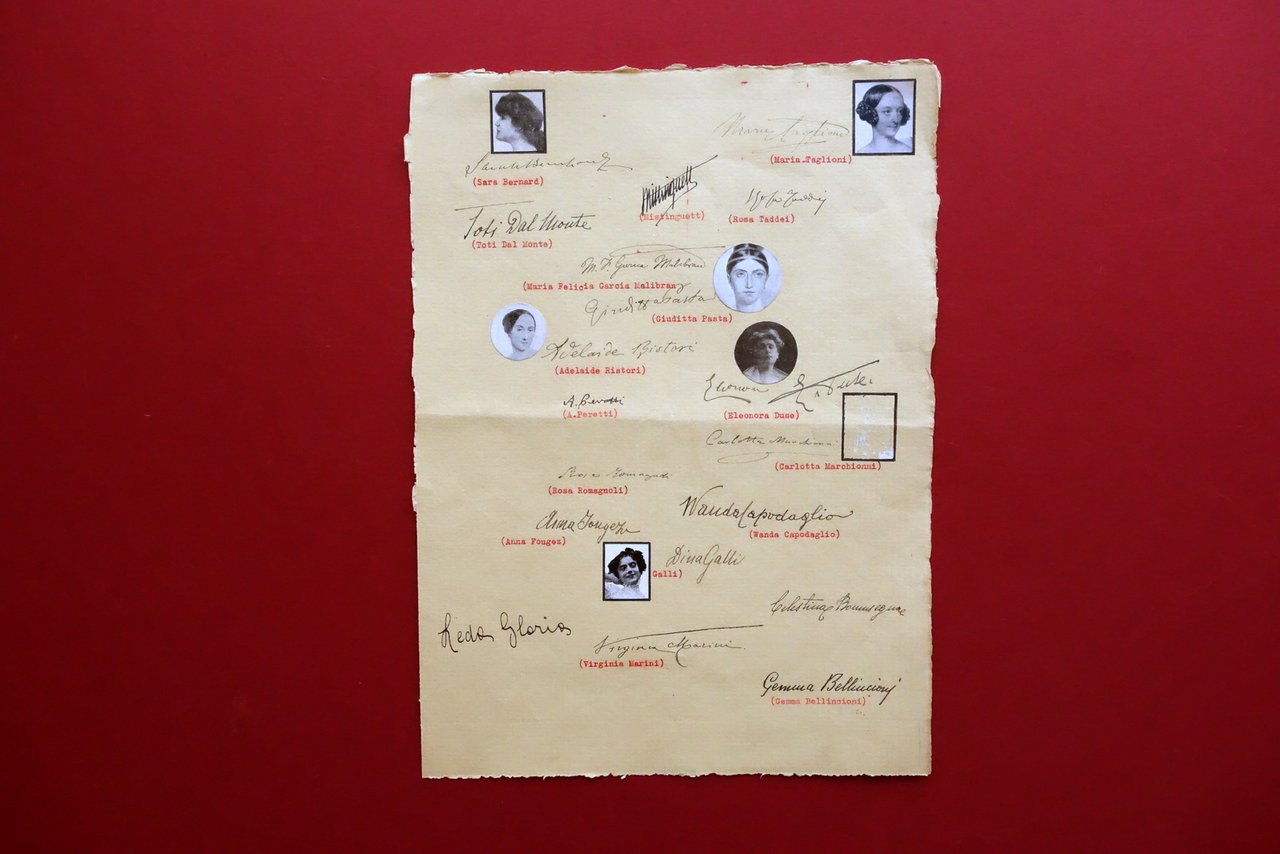 Maria Taglioni
(Maria Taglioni)
Sarah Bernhardt
(Sara Bernard)
Mistinguett
(Mistinguett)
Rosa Taddei
(Rosa Taddei)
Toti Dal Monte
(Toti Dal Monte)
M. F. Garcia Malibran
(Maria Felicia Garcia Malibran)
Giuditta Pasta
(Giuditta Pasta)
Adelaide Ristori
(Adelaide Ristori)
Eleonora Duse
(Eleonora Duse)
A. Peretti
(A.Peretti)
Carlotta Marchionni
(Carlotta Marchionni)
Rosa Romagnoli
(Rosa Romagnoli)
Wanda Capodaglio
(Wanda Capodaglio)
Anna Fougez
(Anna Fougez)
Dina Galli
Galli)
Celestina Boninsegna
Leda Gloria
Virginia Marini
(Virginia Marini)
Gemma Bellincioni
(Gemma Bellincioni)